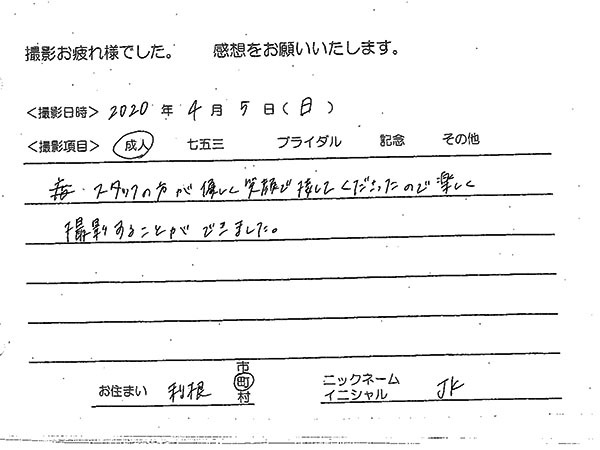 撮影お疲れ様でした。 感想をお願いいたします。
<撮影日時> 2020 年 4 月 5 日(日)
<撮影項目> 成人 七五三 ブライダル 記念 その他
スタッフの方が優しく笑顔で接してくださったので楽しく
撮影することができました。
お住まい 利根 市町村
ニックネーム
イニシャル JK